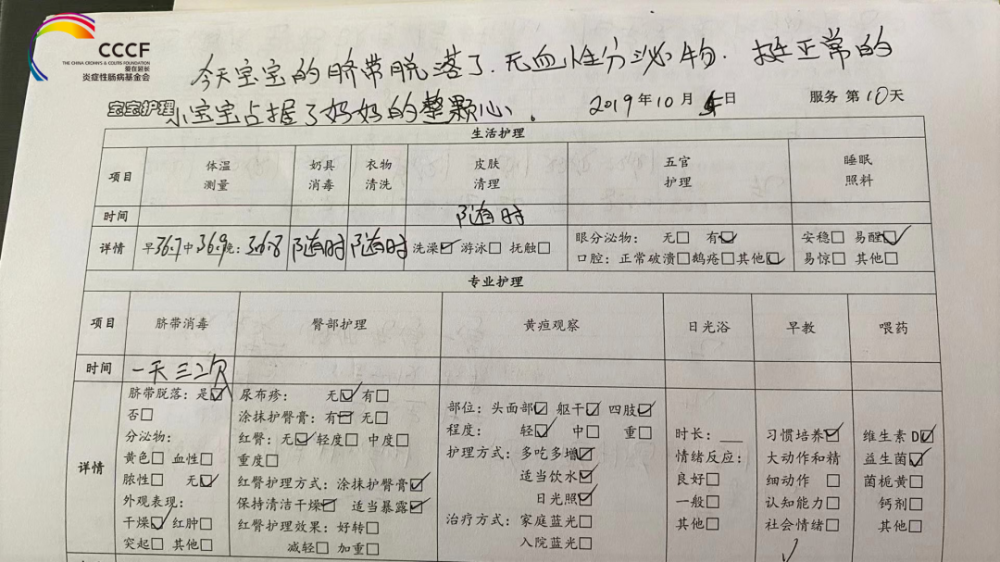 CCCF
THE CHINA CROHN'S & COLITIS FOUNDATION
爱在延长
炎症性肠病基金会
今天宝宝的脐带脱落了.无血性分泌物.挺正常的
小宝宝占据了妈妈的整颗心.
宝宝护理 2019年10月 日 服务 第10天
生活护理
项目 体温测量 奶具消毒 衣物清洗 皮肤清理 五官护理 睡眠照料
时间 随时
详情 早36.7中36.9晚:36.8 随时 随时 洗澡☑ 游泳□ 抚触□ 眼分泌物: 无□ 有☑ 安稳□ 易醒☑
口腔:正常破溃□鹅疮□其他☑ 易惊□ 其他□
专业护理
项目 脐带消毒 臀部护理 黄疸观察 日光浴 早教 喂药
时间 一天三次
详情
脐带脱落:是☑
否□
分泌物:
黄色□ 血性□
脓性□ 无☑
外观表现:
干燥☑ 红肿□
突起□ 其他□
尿布疹: 无☑ 有□
涂抹护臀膏:有☑ 无□
红臀:无☑ 轻度□ 中度□
重度□
红臀护理方式:涂抹护臀膏☑
保持清洁干燥☑ 适当暴露☑
红臀护理效果:好转□
减轻□ 加重□
部位:头面部☑ 躯干☑ 四肢☑
程度: 轻☑ 中□ 重□
护理方式:多吃多增☑
适当饮水☑
日光照☑
治疗方式:家庭蓝光□
入院蓝光□
时长:__
情绪反应:
良好□
一般□
其他□
习惯培养☑
大动作和精
细动作 □
认知能力□
社会情绪□
维生素 D☑
益生菌☑
菌栀黄□
钙剂□
其他□